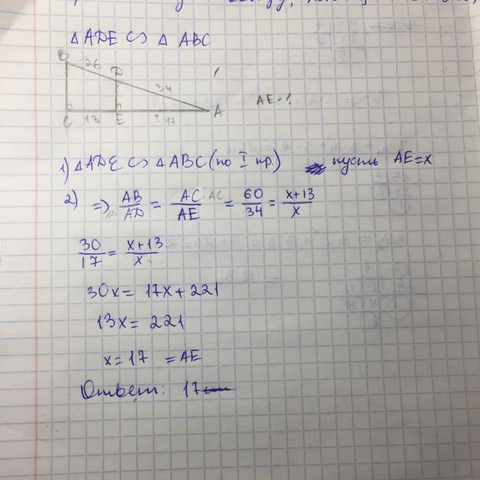 △ADE ∽ △ABC
B
26
D
34
C
13
E
17
A
AE-?
1) △ADE ∽ △ABC (по I пр.) пусть AE=x
2) => AB/AD = AC/AE = 60/34 = x+13/x
30/17 = x+13/x
30x = 17x + 221
13x = 221
x = 17 = AE
Ответ: 17